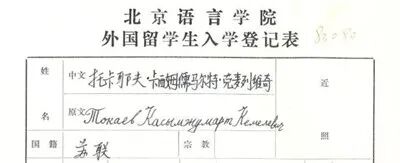 北京语言学院
外国留学生入学登记表
姓名
中文 托卡耶夫·卡西姆儒马尔特·克麦列维奇
原文 Токаев Касымжумарт Кемелевич
近照
国籍 苏联 宗教